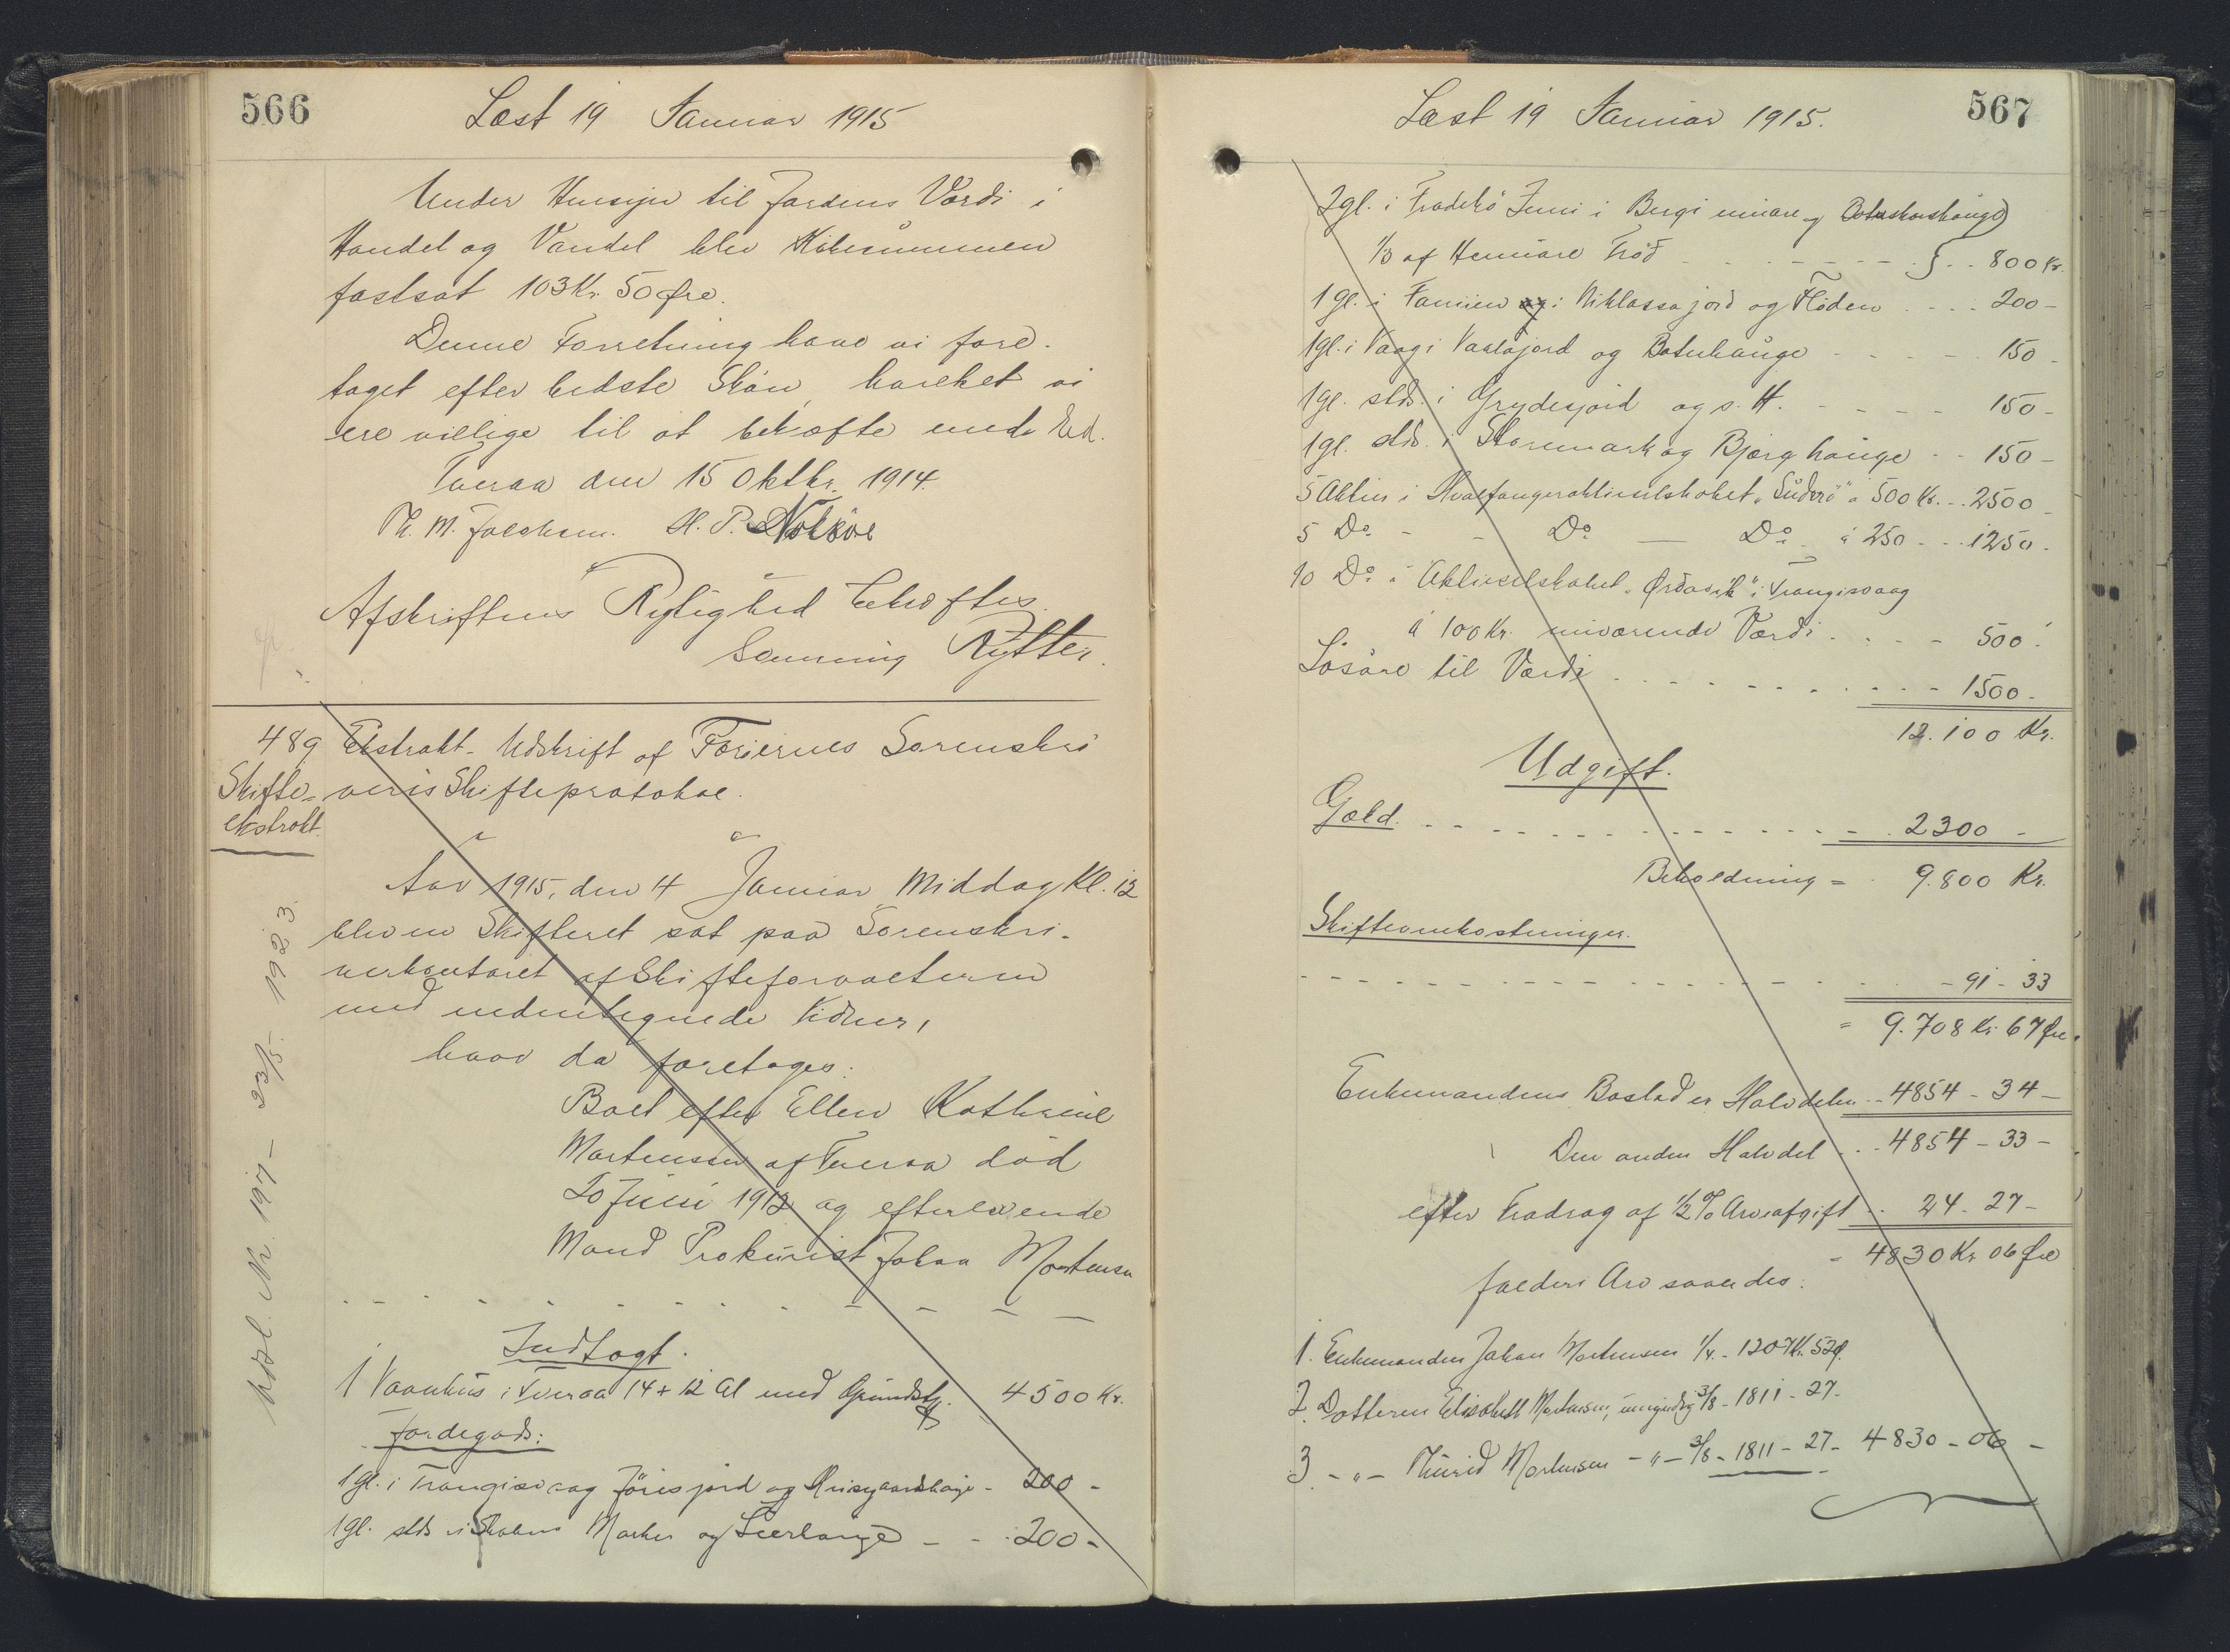 566
Læst 19 Januar 1915
Under Hensyn til Jordens Værdi i
Handel og Vandel blev Købesummen
fastsat 103 Kr. 50 Øre.
Denne Forretning have vi fore-
taget efter bedste Skøn, hvilket vi
ere villige til at bekræfte med Ed.
Tveraa den 15 Oktbr. 1914.
H. P. Nolsøe
Afskriftens Rigtighed bekræftes
Rytter.
489 Ekstrakt-Udskrift af Færøernes Sorenskri
Skifte- veris Skifteprotokol.
ekstrakt.
Aar 1915, den 4 Januar Middag Kl. 12
blev en Skifteret sat paa Sorenskri-
verkontoret af Skifteforvalteren
med undertegnede Vidner,
hvor da foretoges:
Boet efter Ellen Kathrine
Mortensen af Tveraa død
20 Juni 1912 og efterlevende
Mand Prokurist Johan Mortensen
Indtægt.
1 Vaanhus i Tveraa 14 + 12 Al med Grundst. 4500 Kr.
Jordegods:
1 gl. i Trangisvaag Jørisjord og - 200 -
1 gl. stds i Marken og - - 200 -
Udsl. Nr. 197 - 23/5- 1923.
567
Læst 19 Januar 1915.
2 gl. i Frodebø
1/3 af 800 Kr.
1 gl. i Famien og i Niklassajord og Fløden .... 200 -
1 gl. i Vaag i og Botnhauge - - - - 150 -
1 gl. stds. i Grydesjord og s. H. - - - - 150 -
1 gl. stds. i Storemark og Bjærghauge - - 150 -
5 Aktier i Hvalfangeraktieselskabet "Suderø" a 500 Kr. .. 2500 -
5 Do - - Do — Do á 250 - .. 1250 -
10 Do i Aktieselskabet "Ørdavik" i Trangisvaag
á 100 Kr. nuværende Værdi .... - 500 -
Løsøre til Værdi - - - - 1500 -
12.100 Kr.
Udgift.
Gæld. - - - - 2300 -
Beholdning = 9.800 Kr.
Skifteomkostninger.
- - - - 91 - 33
= 9.708 Kr. 67 Øre.
Enkemandens Boslod er Halvdelen - 4854 - 34 -
Den anden Halvdel - .. 4854 - 33 -
efter Fradrag af 1/2 % Arveafgift .. 24 - 27 -
= 4830 Kr 06 Øre
falder i Arv saaledes:
1. Enkemanden Johan Mortensen 1/4 - 1207 Kr. 52 Ø.
2. Datteren Elisabeth Mortensen, umyndig 3/8 - 1811 - 27 -
3. - " - Thurid Mortensen - " - 3/8 - 1811 - 27 - 4830 - 06 -